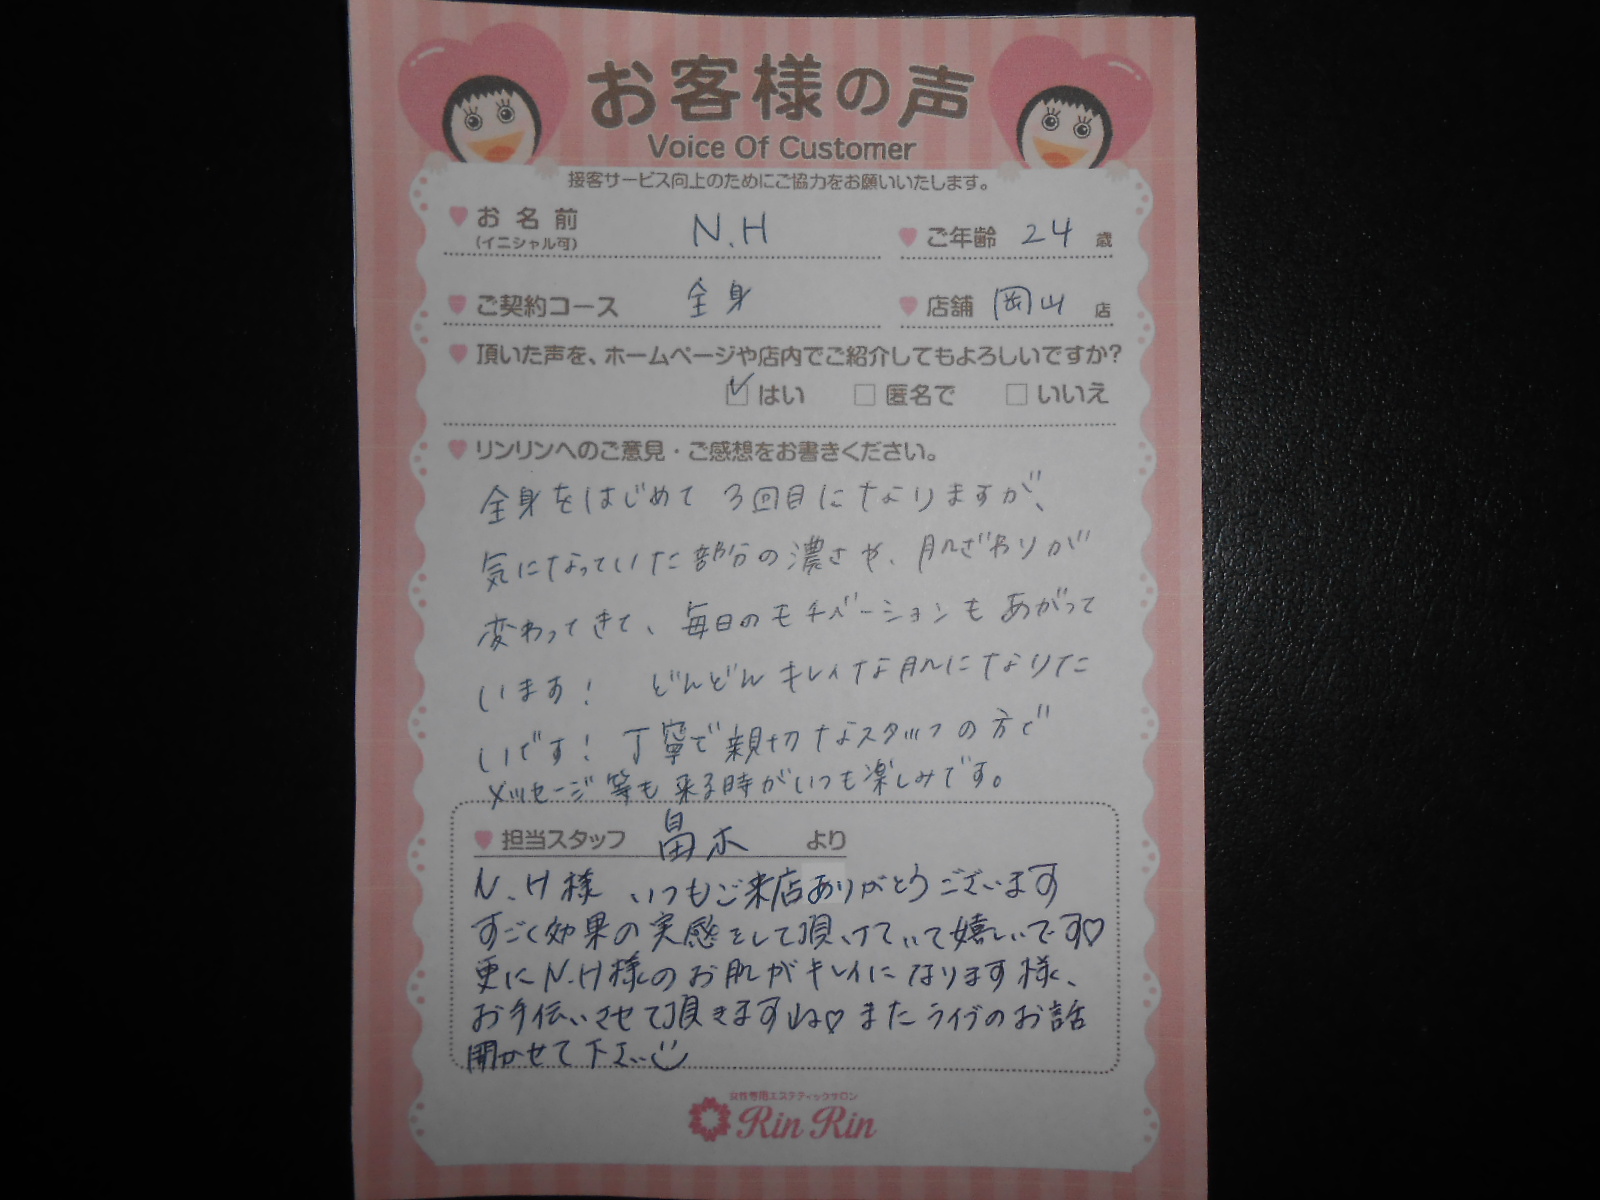 お客様の声
Voice Of Customer
接客サービス向上のためにご協力をお願いいたします。
お名前 N.H ご年齢 24 歳
(イニシャル可)
ご契約コース 全身 店舗 岡山 店
頂いた声を、ホームページや店内でご紹介してもよろしいですか?
はい 匿名で いいえ
リンリンへのご意見・ご感想をお書きください。
全身をはじめて 3回目になりますが、
気になっていた部分の濃さや、肌ざわりが
変わってきて、毎日のモチベーションもあがって
います! どんどんキレイな肌になりた
いです! 丁寧で親切なスタッフの方で
メッセージ等も来る時がいつも楽しみです。
担当スタッフ 畠木 より
N.H様 いつもご来店ありがとうございます
すごく効果の実感をして頂けていて嬉しいです♡
更にN.H様のお肌がキレイになります様、
お手伝いさせて頂きますね♡またライブのお話
聞かせて下さい
女性専用エステティックサロン
Rin Rin